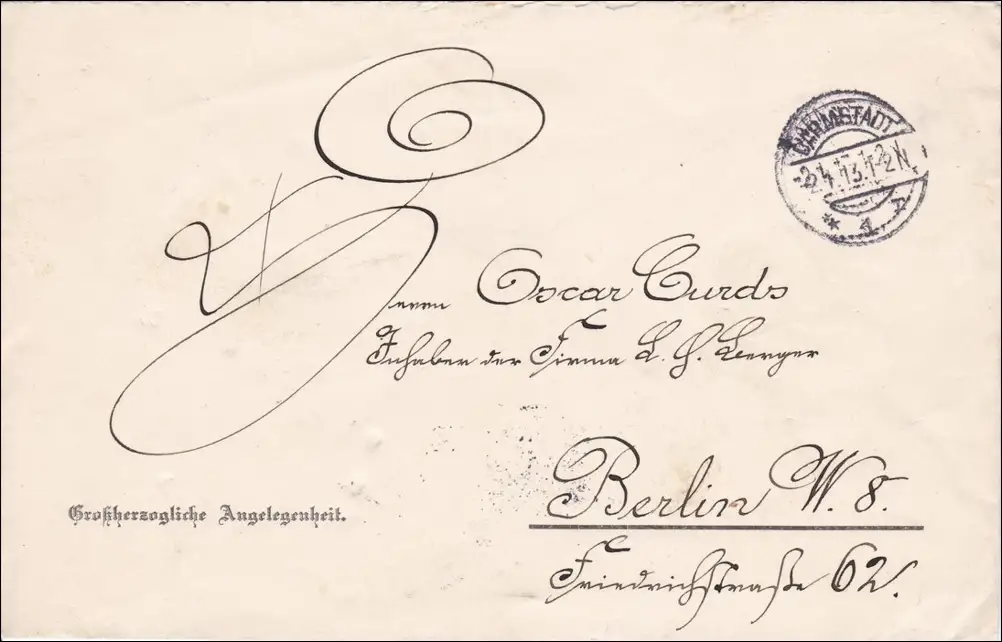 DARMSTADT
-2.4.13.1-2N.
** 1 A
Herrn Oscar Curds
Inhaber der Firma L. H. Berger
Berlin W. 8.
Friedrichstraße 62.
Großherzogliche Angelegenheit.